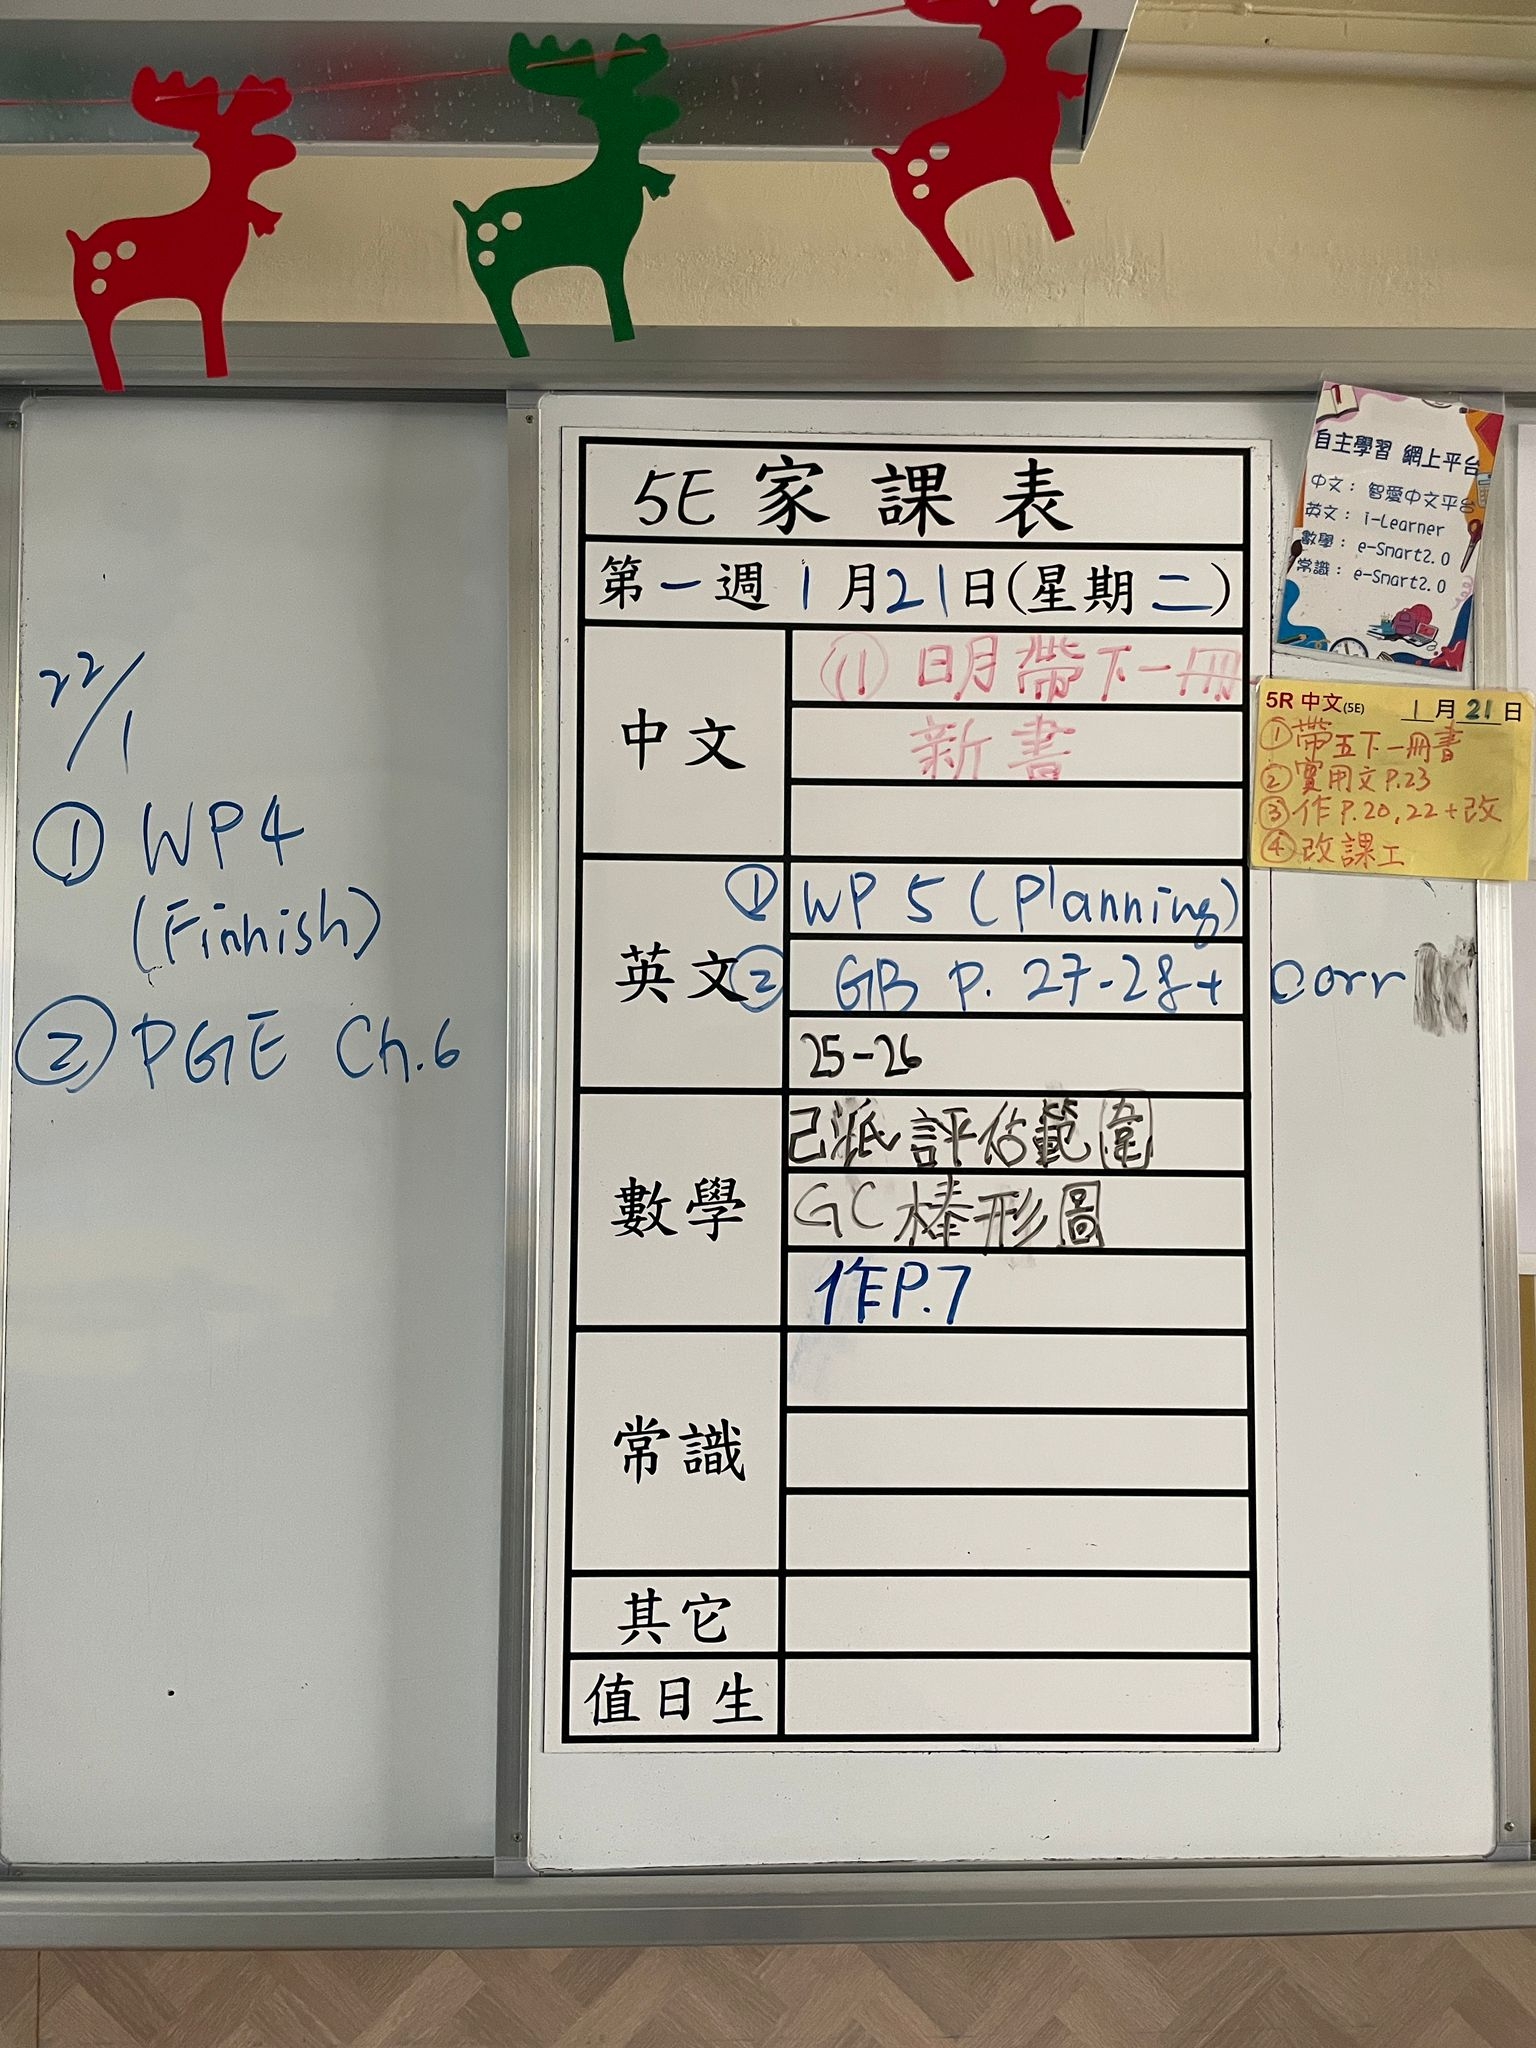 22/1
① WP4
(Finnish)
② PGE Ch.6
5E 家課表
第一週 1月21日(星期二)
中文
(1) 日月帶下一冊
新書
英文
① WP 5 (Planning)
② GB P. 27-28+ corr
25-26
數學
己派評估範圍
GC棒形圖
作P.7
常識
其它
值日生
自主學習 網上平台
中文：智愛中文平台
英文：i-Learner
數學：e-Smart2.0
常識：e-Smart2.0
5R 中文(5E) 1月21日
①帶五下一冊書
②實用文P.23
③作P.20,22+改
④改課工